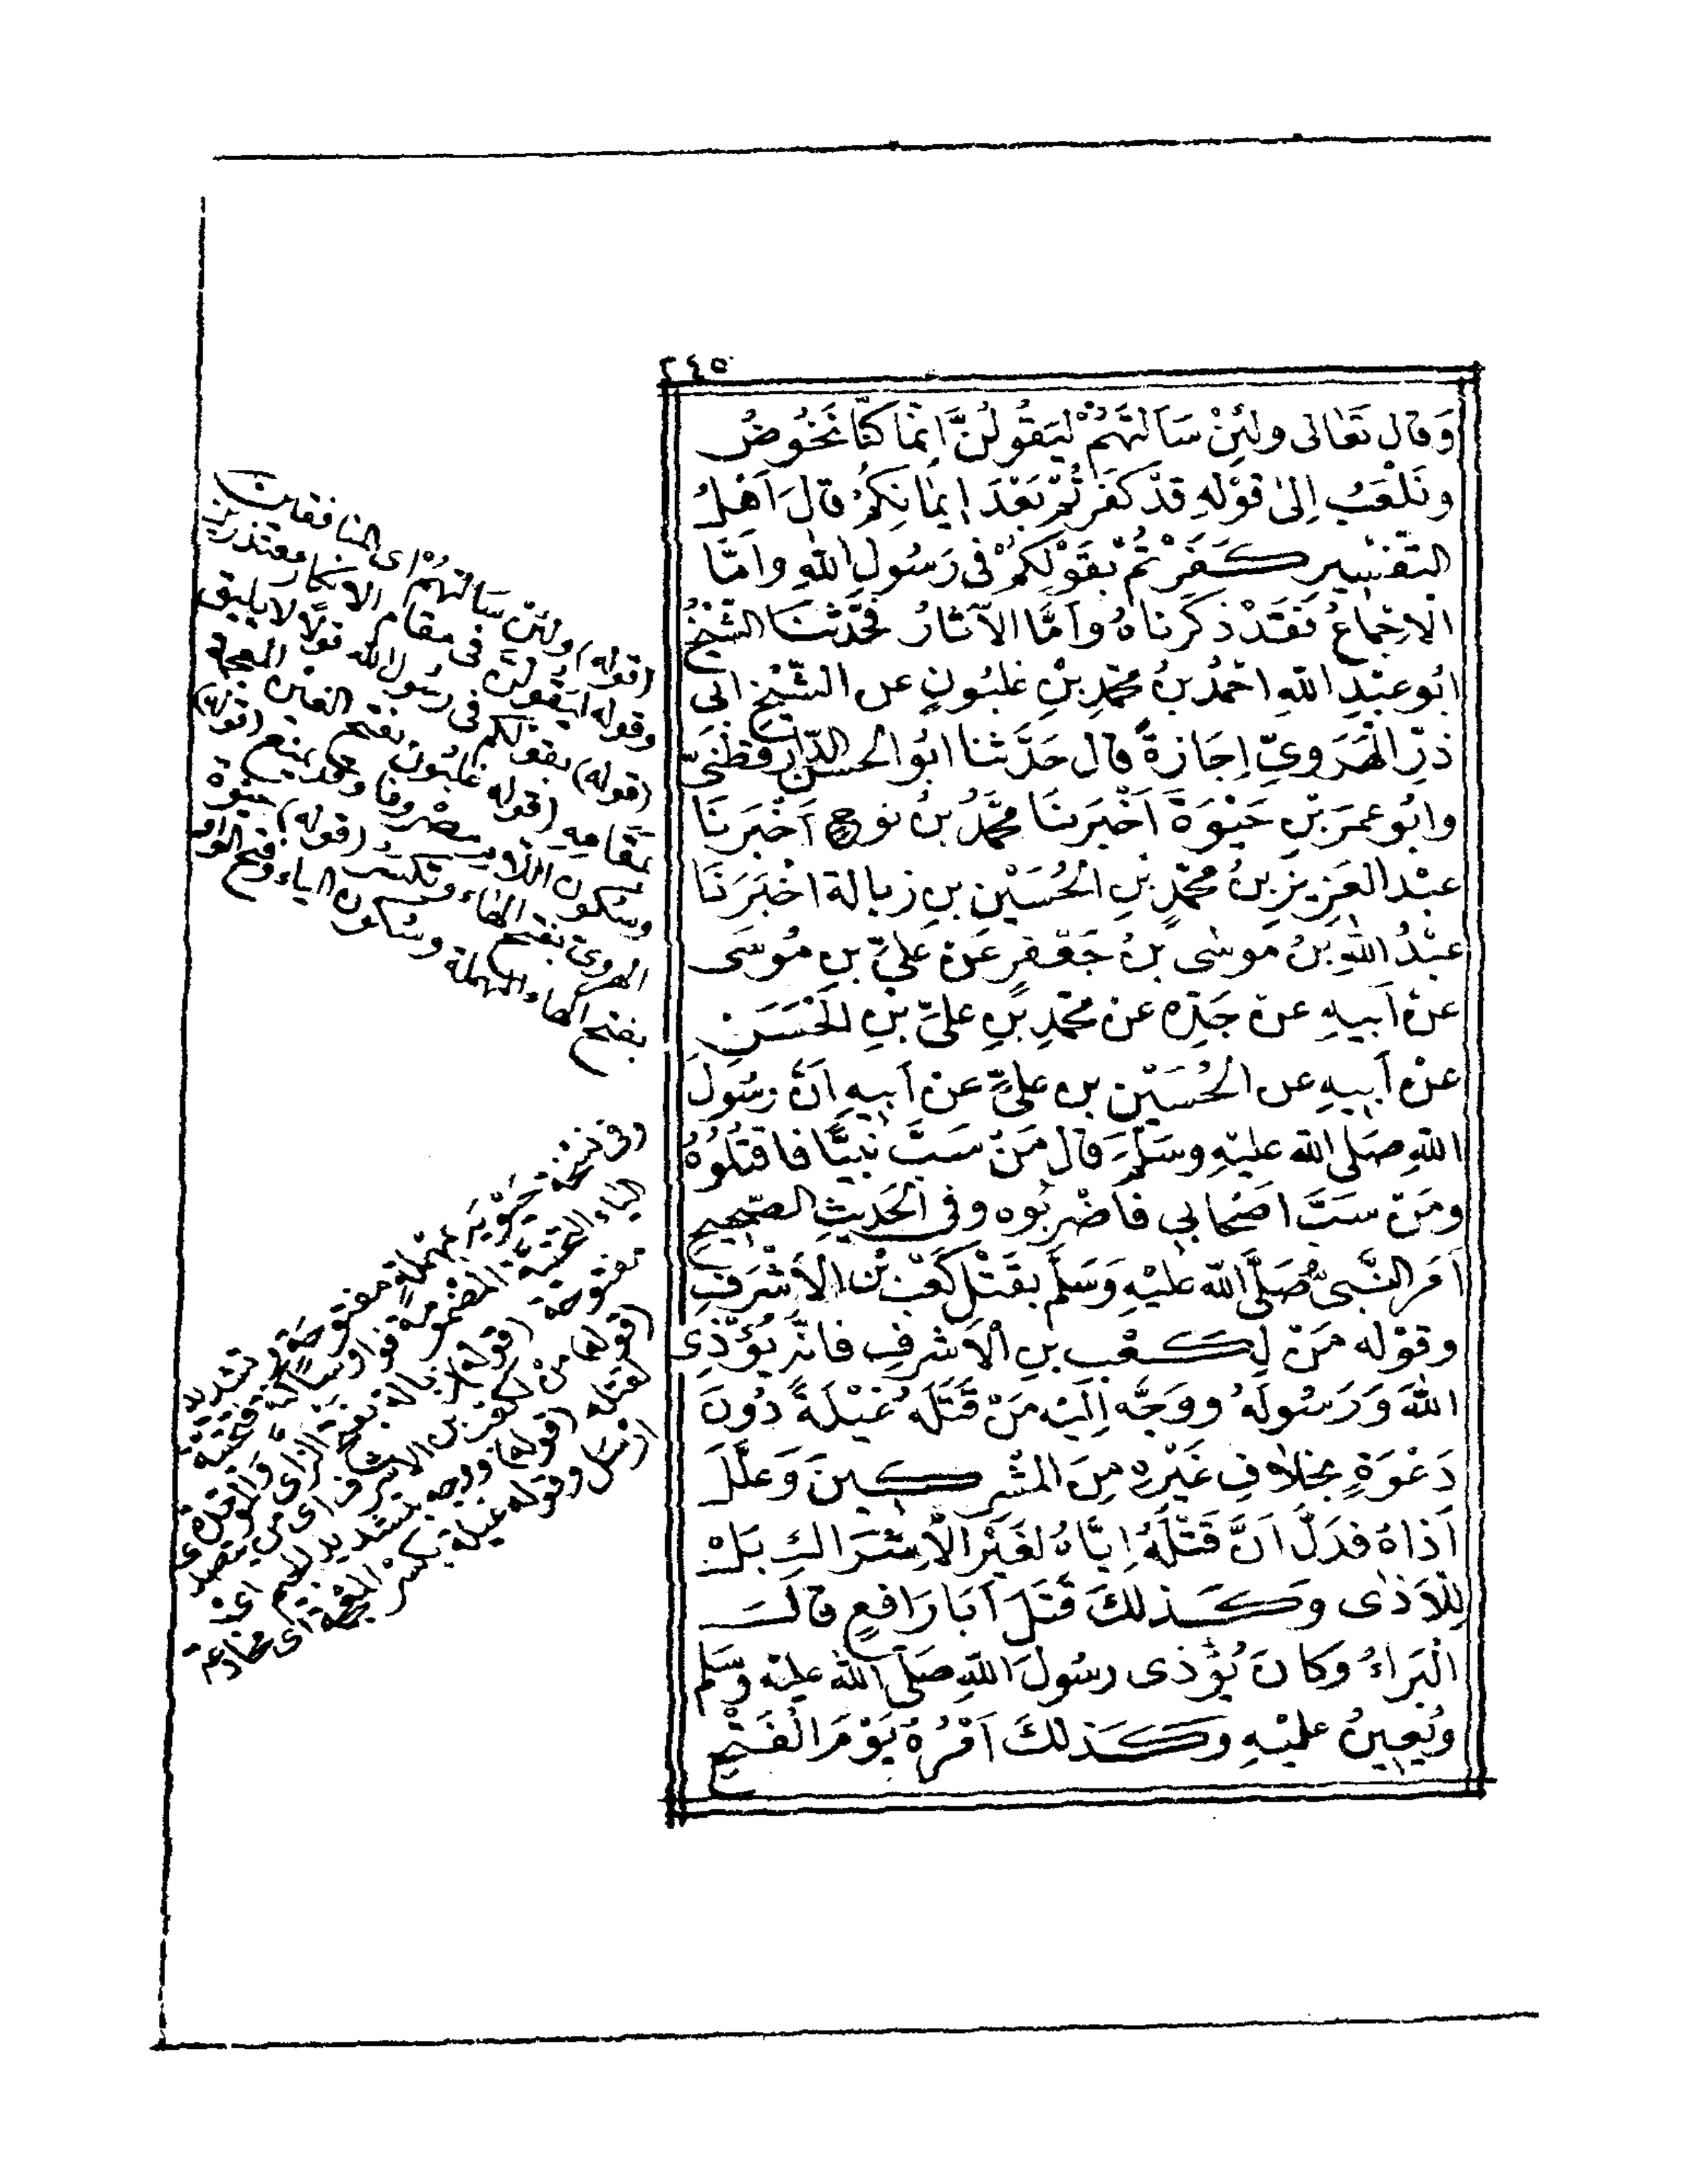 ٢٤٥
وَقَالَ تَعَالٰى وَلَئِنْ سَاَلْتَهُمْ لَيَقُولُنَّ اِنَّمَا كُنَّا نَخُوضُ
وَنَلْعَبُ اِلىٰ قَوْلِهِ قَدْ كَفَرْتُمْ بَعْدَ اِيمَانِكُمْ قَالَ اَهْلُ
التَّفْسِيرِ كَفَرْتُمْ بِقَوْلِكُمْ فِى رَسُولِ اللّٰهِ وَاَمَّا
الْاِجْمَاعُ فَقَدْ ذَكَرْنَاهُ وَاَمَّا الْآثَارُ فَحَدَّثَنَا الشَّيْخُ
اَبُو عَبْدِ اللّٰهِ اَحْمَدُ بْنُ مُحَمَّدِ بْنِ غَلْبُونٍ عن الشَّيْخِ اَبِى
ذَرٍّ الْهَرَوِيِّ اِجَازَةً قَالَ حَدَّثَنَا اَبُو الْحَسَنِ الدَّارَقُطْنِىُّ
وَاَبُو عُمَرَ بْنِ حَيْوَةَ اَخْبَرَنَا مُحَمَّدُ بْنُ نوح اَخْبَرَنَا
عَبْدُ الْعَزِيزِ بْنُ مُحَمَّدِ بْنِ الْحُسَيْنِ بنِ زبالة اَخْبَرَنَا
عَبْدُ اللّٰهِ بْنُ موسٰى بْنُ جَعْفَرٍ عَنْ عَلِيِّ بنِ مُوسَى
عَنْ اَبِيهِ عَنْ جَدِّهِ عَنْ مُحَمَّدِ بْنِ عَلِيِّ بْنِ الْحُسَيْنِ
عَنْ اَبِيهِ عن الْحُسَيْنِ بن عَلِيٍّ عَنْ اَبِيهِ اَنَّ رَسُولَ
اللّٰهِ صَلَّى اللّٰه عَلَيْهِ وَسَلَّمَ قَالَ مَنْ سَبَّ نَبِيًّا فَاقْتُلُوهُ
وَمَنْ سَبَّ اَصْحَابِي فَاضْرِبُوه وَفِى الْحَدِيثِ الصَّحِيحِ
اَمَرَ النَّبِىُّ صَلَّى اللّٰه عَلَيْهِ وَسَلَّمَ بِقَتْلِ كَعْبِ بْنِ الْاَشْرَفِ
وَقَوْله مَنْ لِكَعْبِ بنِ الْاَشْرَفِ فَاِنَّهُ يُؤْذِى
اللّٰهَ وَرَسُولَهُ وَوَجَّه اِلَيْهِ مَنْ قَتَلَهُ غِيْلَةً دُونَ
دَعْوَةٍ بِخِلَافِ غَيْرِهِ مِنَ الْمُشْرِكِينَ وَعَلَّلَ
اَذَاهُ فَدَلَّ اَنَّ قَتْلَهُ اِيَّاهُ لِغَيْرِ الْاِشْرَاكِ بَلْ
لِلْاَذٰى وَكَذٰلِكَ قَتَلَ اَبَا رَافِعٍ قَالَ
الْبَرَاءُ وَكَانَ يُؤْذِى رَسُولَ اللّٰهِ صَلَّى اللّٰهُ عَلَيْهِ وَسَلَّم
وَيُعِينُ عَلَيْهِ وَكَذٰلِكَ اَمْرُهُ يَوْمَ الْفَتْحِ
(قوله) ولئن سَالتهُمْ اى المنافقين
وقوله ليَقُولن فى مقام الانكار معتذرين
(قوله) بقولكم فى رسُول الله قولًا لا يليق
بمَقامِهِ (قوله) غلبُون بفتح الغين المعجمة
وسُكون اللام مصروفا وقد يمنع (قوله)
الهروى بفتح الهاء وتكسر (قوله) حيوة
بفتح الحاء المهملة وسُكون الياء وفتح الواو
وفى نسخة حَيُّويَه بمهملةٍ مفتوحَةٍ وتشديد
الياء التحتيّة المضمومة فواوساكنة فتحتيّة
مفتوحة (قوله) زبالة بفتح الزاى
(قوله) مَنْ لكعب بن الاشرف اى من يتصد
لقتله (قوله) ووجه بتشديد الجيم اى
ارسَل وقوله غيلة بكسْر المعجمة اى مخادعة